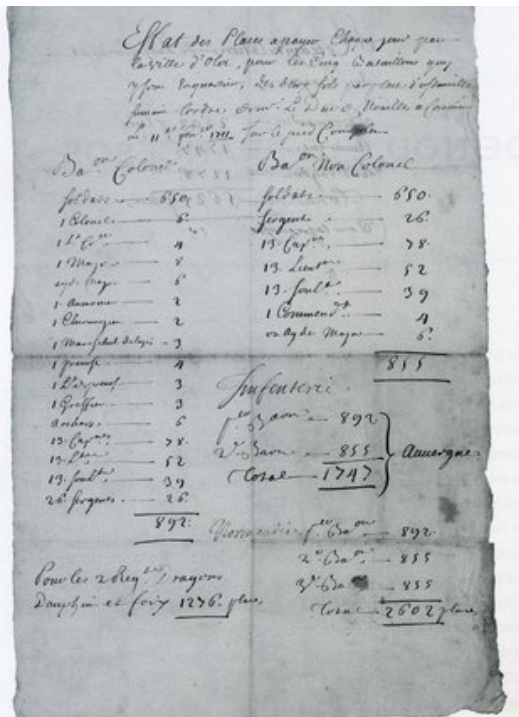 Estat des Places a payer Chaque jour par
la ville d'Olot, pour les Cinq Bataillons qui
y sont en quartier, des deux sols par place d'ustancille
suivant l'ordre de Mr. Le Duc de Noailles a
Le 11e 1711 sur le pied Complet
Baon Colonel
Soldats 650
1 Colonel 6
1 Lt Conel 4
1 Major 8
ayde major 6
1 Aumonier 2
1 Chirurgien 2
1 Mareschal de logis 3
1 prevost 4
1 Lt 3
1 Greffier 3
archers 6
13 Capnes 78
13 Ltens 52
13 soult 39
26 sergens 26
892
Baon Non Colonel
Soldats 650
Sergents 26
13 Capnes 78
13 Lieuts 52
13 soult 39
1 Commendt 4
un Ayde Major 6
855
Infenterie
1er Baon 892
2e Baon 855
Total 1747
Auvergne
Normendie 1er Baon 892
2e Baon 855
3e Baon 855
Total 2602 places
Pour les 2 Regts Dragons
Dauphin et foix 1276 places